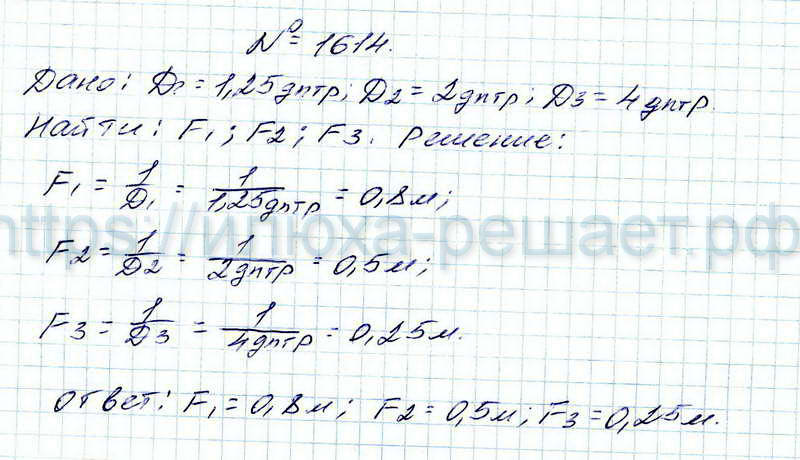 № 1614.
Дано: D1 = 1,25 дптр; D2 = 2 дптр; D3 = 4 дптр.
Найти: F1; F2; F3. Решение:
F1 = 1/D1 = 1/1,25 дптр = 0,8 м;
https://илюха-решает.рф
F2 = 1/D2 = 1/2 дптр = 0,5 м;
F3 = 1/D3 = 1/4 дптр = 0,25 м.
Ответ: F1 = 0,8 м; F2 = 0,5 м; F3 = 0,25 м.